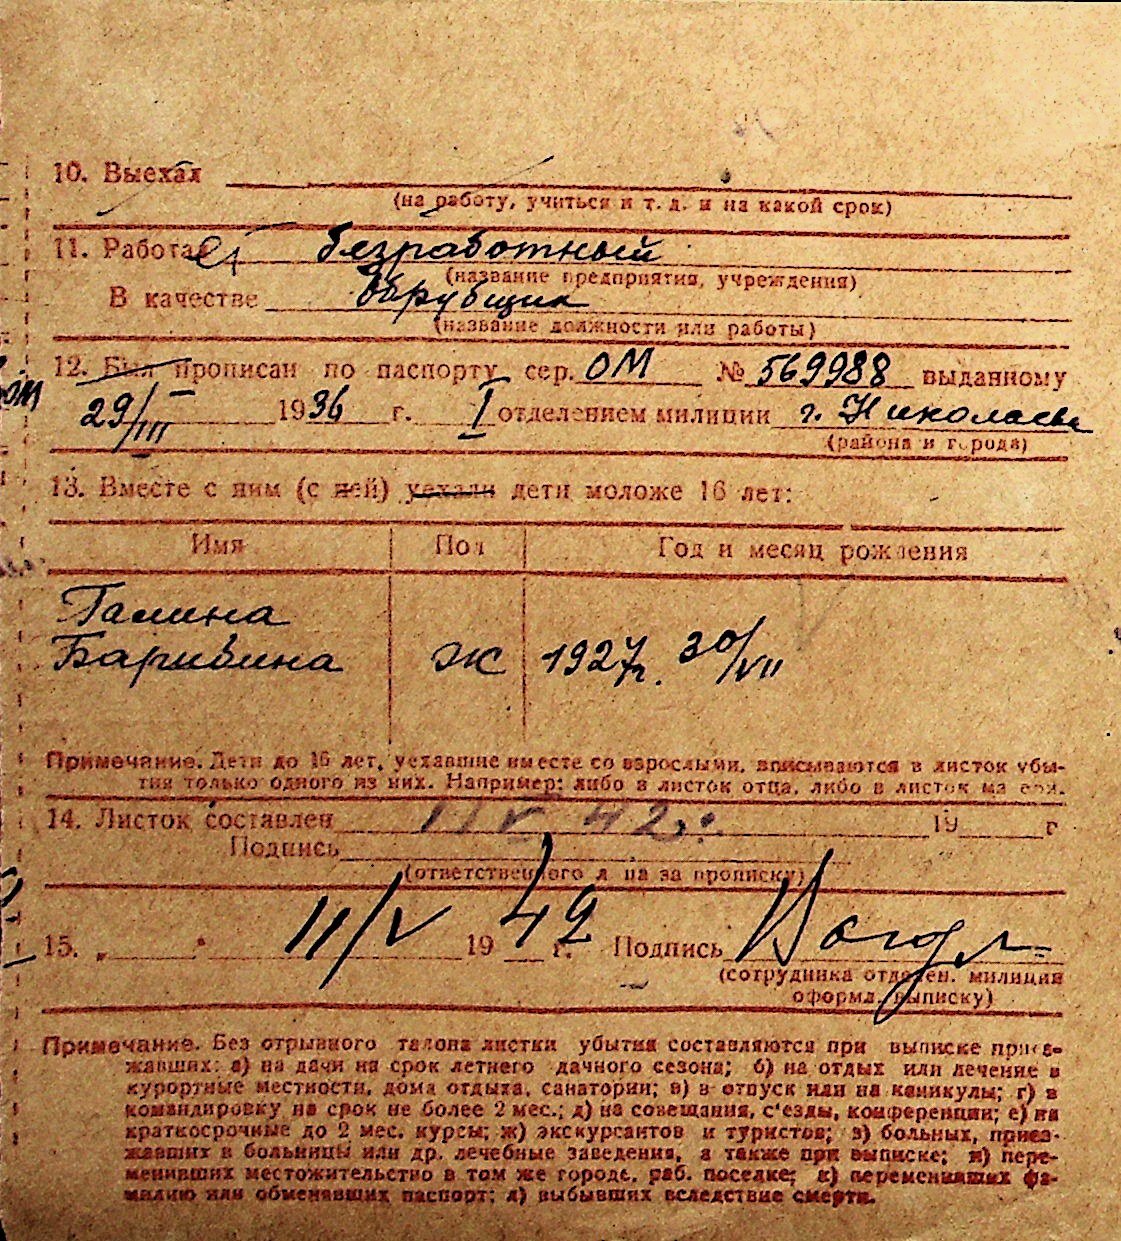 10. Выехал
(на работу, учиться и т. д. и на какой срок)
11. Работает безработный
(название предприятия, учреждения)
В качестве Зарубщик
(название должности или работы)
12. Был прописан по паспорту сер. ОМ № 569988 выданному
29/III 1936 г. I отделением милиции г. Николаева
(района и города)
13. Вместе с ним (с ней) уехали дети моложе 16 лет:
Имя Пол Год и месяц рождения
Галина
Баривина Ж 1927г. 30/VII
Примечание. Дети до 16 лет, уехавшие вместе со взрослыми, вписываются в листок убы-
тия только одного из них. Например: либо в листок отца, либо в листок матери.
14. Листок составлен 11 V 42г. 19 г
Подпись
(ответственного лица за прописку)
15. „ " 11/V 1942 г. Подпись
(сотрудника отделен. милиции
оформл. выписку)
Примечание. Без отрывного талона листки убытия составляются при выписке приез-
жавших: а) на дачи на срок летнего дачного сезона; б) на отдых или лечение в
курортные местности, дома отдыха, санатории; в) в отпуск или на каникулы; г) в
командировку на срок не более 2 мес.; д) на совещания, с'езды, конференции; е) на
краткосрочные до 2 мес. курсы; ж) экскурсантов и туристов; з) больных, приез-
жавших в больницы или др. лечебные заведения, а также при выписке; и) пере-
менивших местожительство в том же городе, раб. поселке; к) переменивших фа-
милию или обменявших паспорт; л) выбывших вследствие смерти.